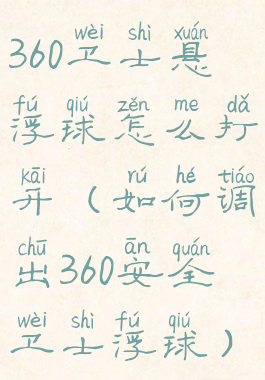 wèi shì xuán
360卫士悬
fú qiú zěn me dǎ
浮球怎么打
kāi rú hé tiáo
开（如何调
chū ān quán
出360安全
wèi shì fú qiú
卫士浮球）